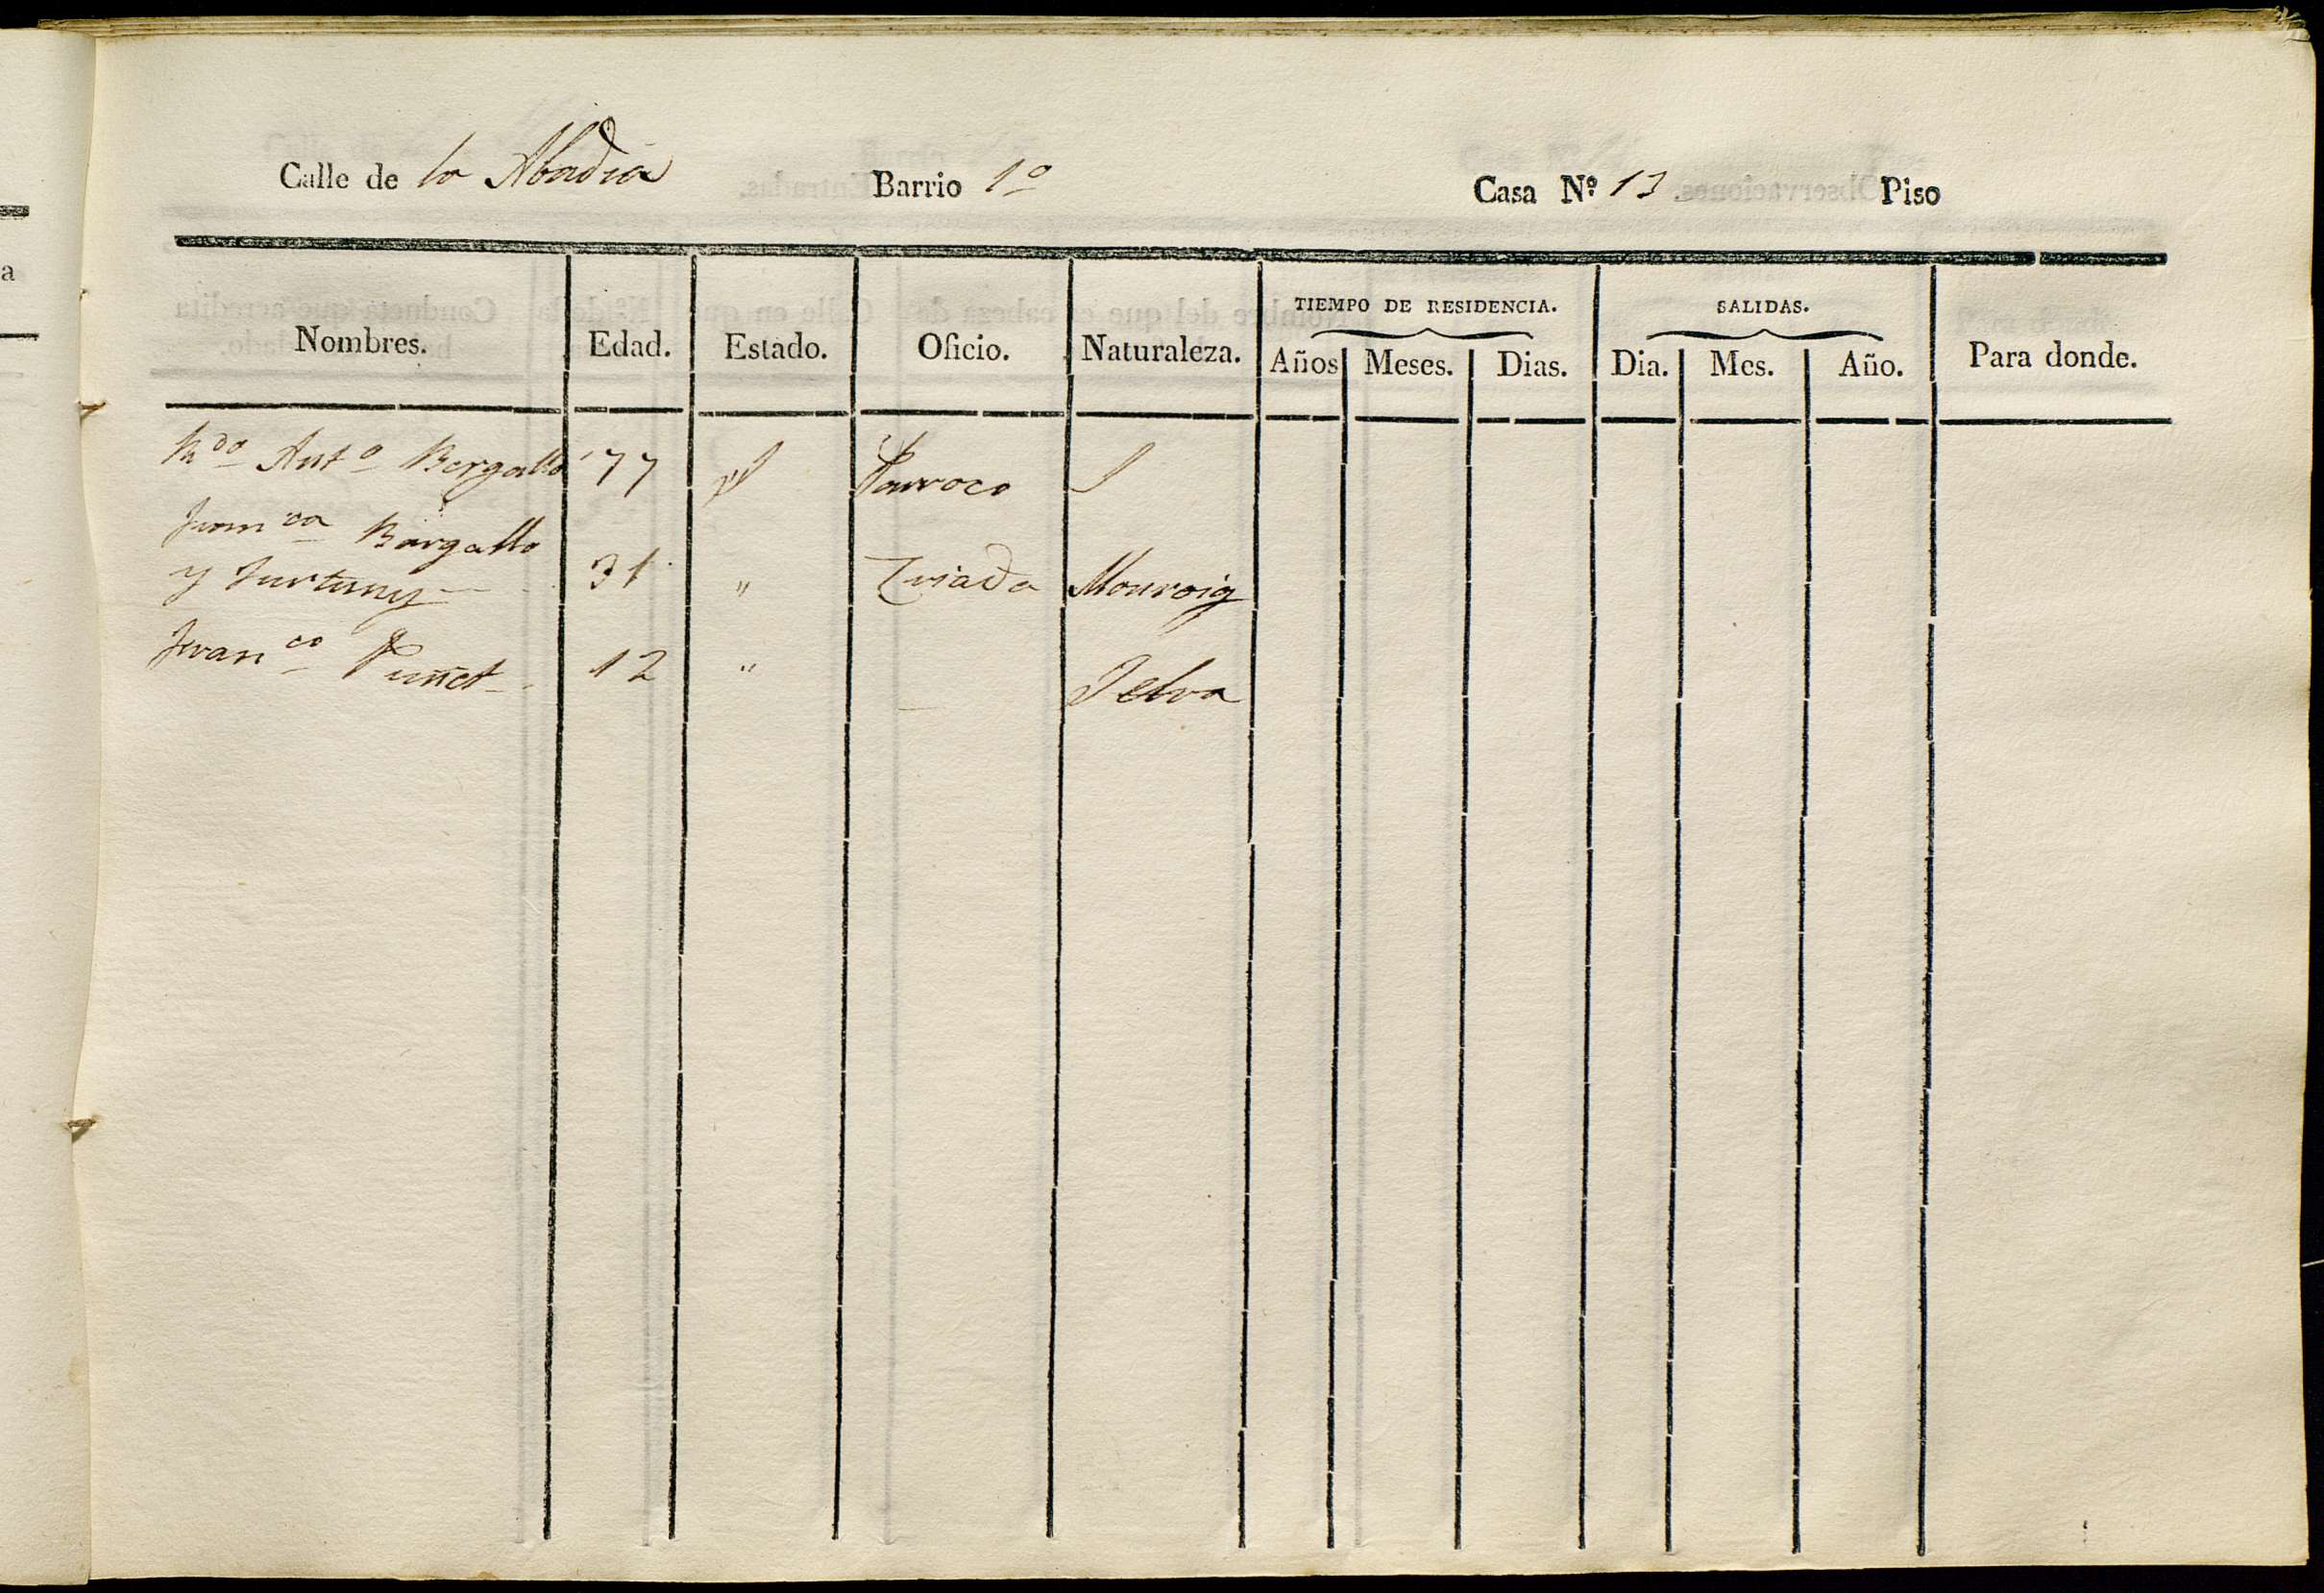 Calle de la Abadia Barrio 1º Casa Nº 13 Piso
Nombres. Edad. Estado. Oficio. Naturaleza. TIEMPO DE RESIDENCIA. SALIDAS. Para donde.
Años Meses. Dias. Dia. Mes. Año.
Rdo Anto Bergalló 77 S Parroco S
Franca Bargallo
y Furtuny 31 " Criada Monroig
Franco Puñet 12 " Selva
a